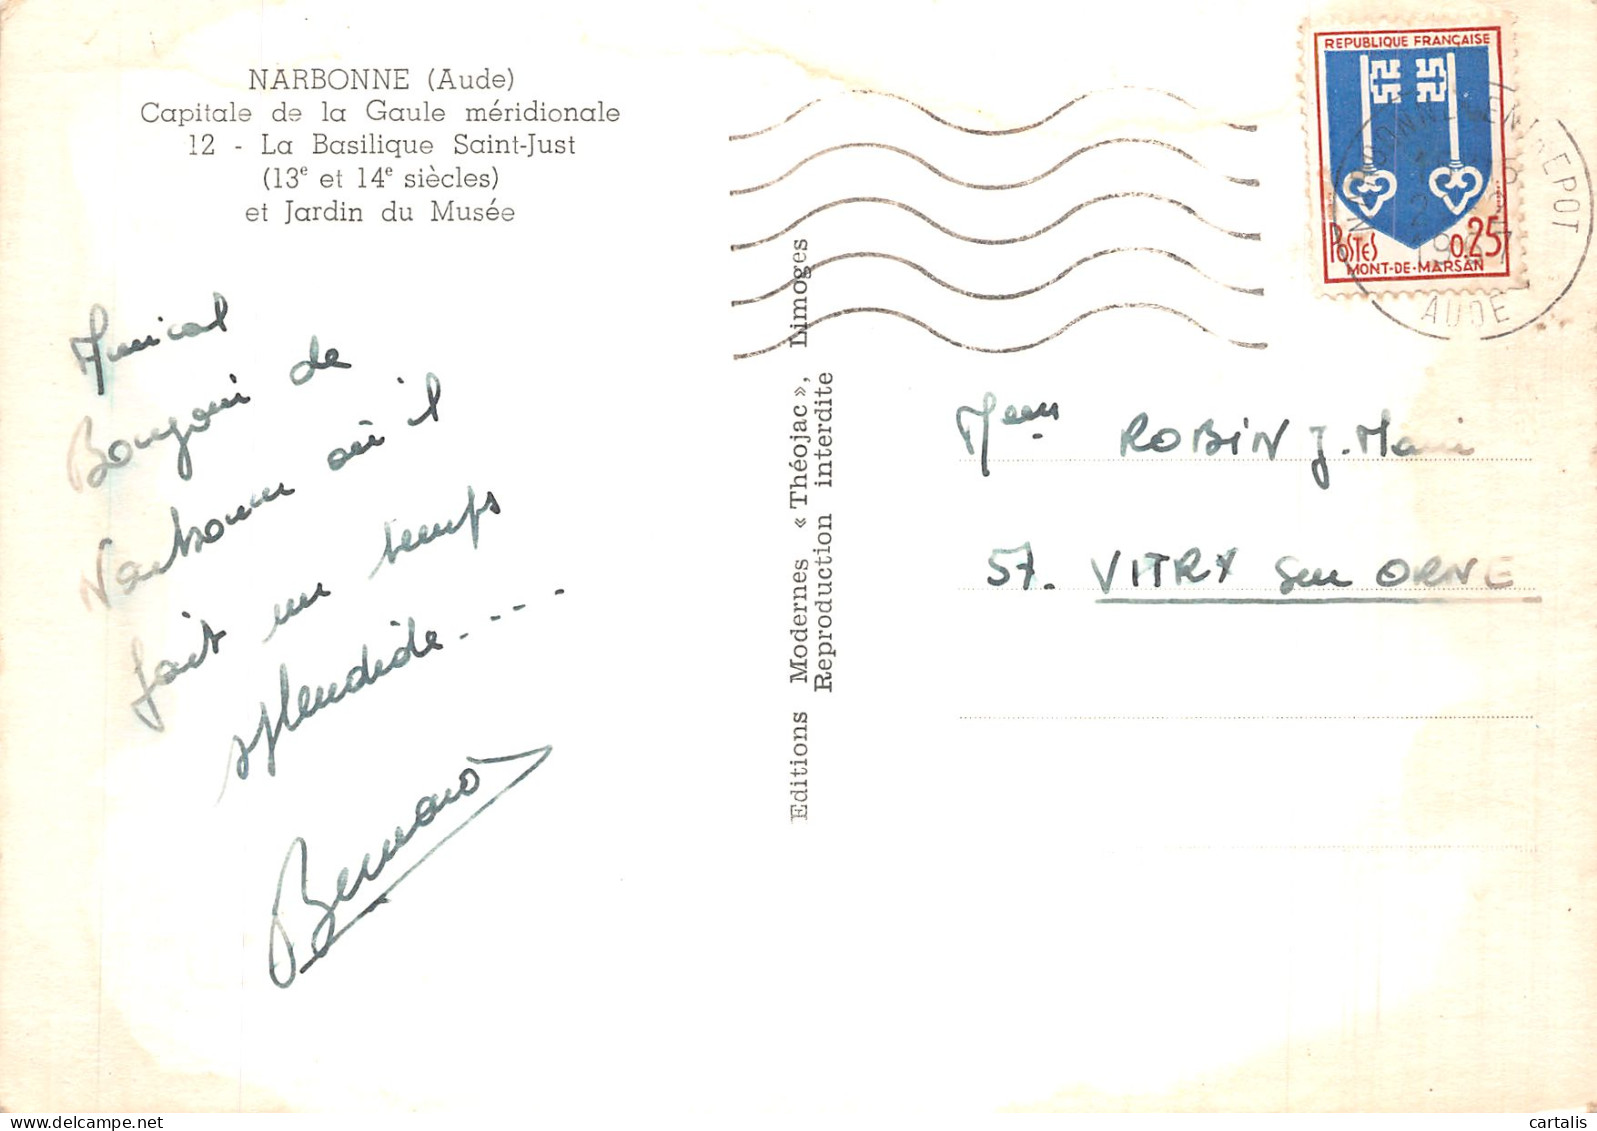 NARBONNE (Aude)
Capitale de la Gaule méridionale
12 - La Basilique Saint-Just
(13e et 14e siècles)
et Jardin du Musée
Amical
Bonjour de
Narbonne où il
fait un temps
splendide....
Bernard
Editions Modernes « Théojac », Limoges
Reproduction interdite
REPUBLIQUE FRANÇAISE
POSTES 0.25
MONT-DE-MARSAN
NARBONNE ENTREPOT
AUDE
ROBIN J. Marie
57. VITRY sur ORNE
cartalis